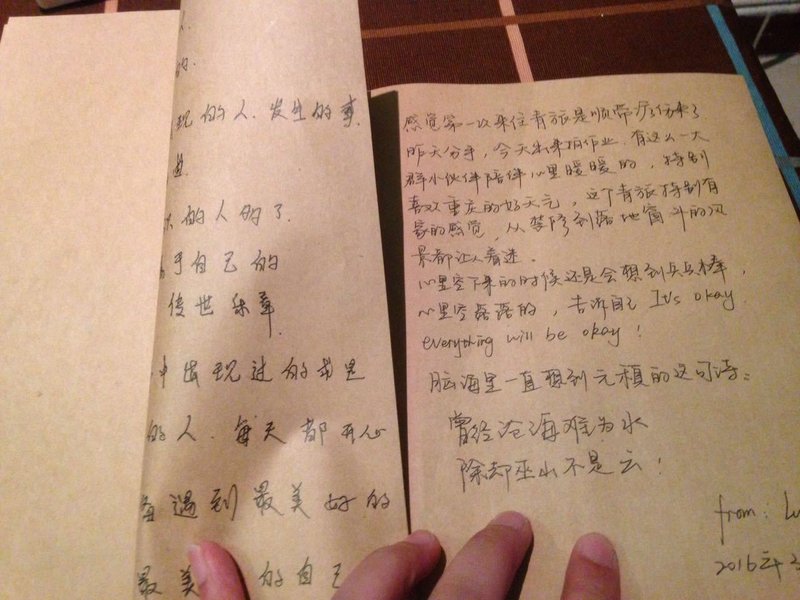 的.
现的人.发生的事.
的人的了.
乎自己的
传世乐章.
中出现过的书是
的人.每天都开心
遇到最美好的
最美 的自己
感觉第一次来住青旅是顺带疗伤来了
昨天分手，今天出来拍作业.有这么一大
群小伙伴陪伴心里暖暖的，特别
喜欢重庆的好天元，这个青旅特别有
家的感觉，从装修到落地窗外的风
景都让人着迷.
心里空下来的时候还是会想到乒乓棒，
心里空落落的，告诉自己 It's okay
everything will be okay！
脑海里一直想到元稹的这句诗：
曾经沧海难为水
除却巫山不是云！
from: Lu
2016年3